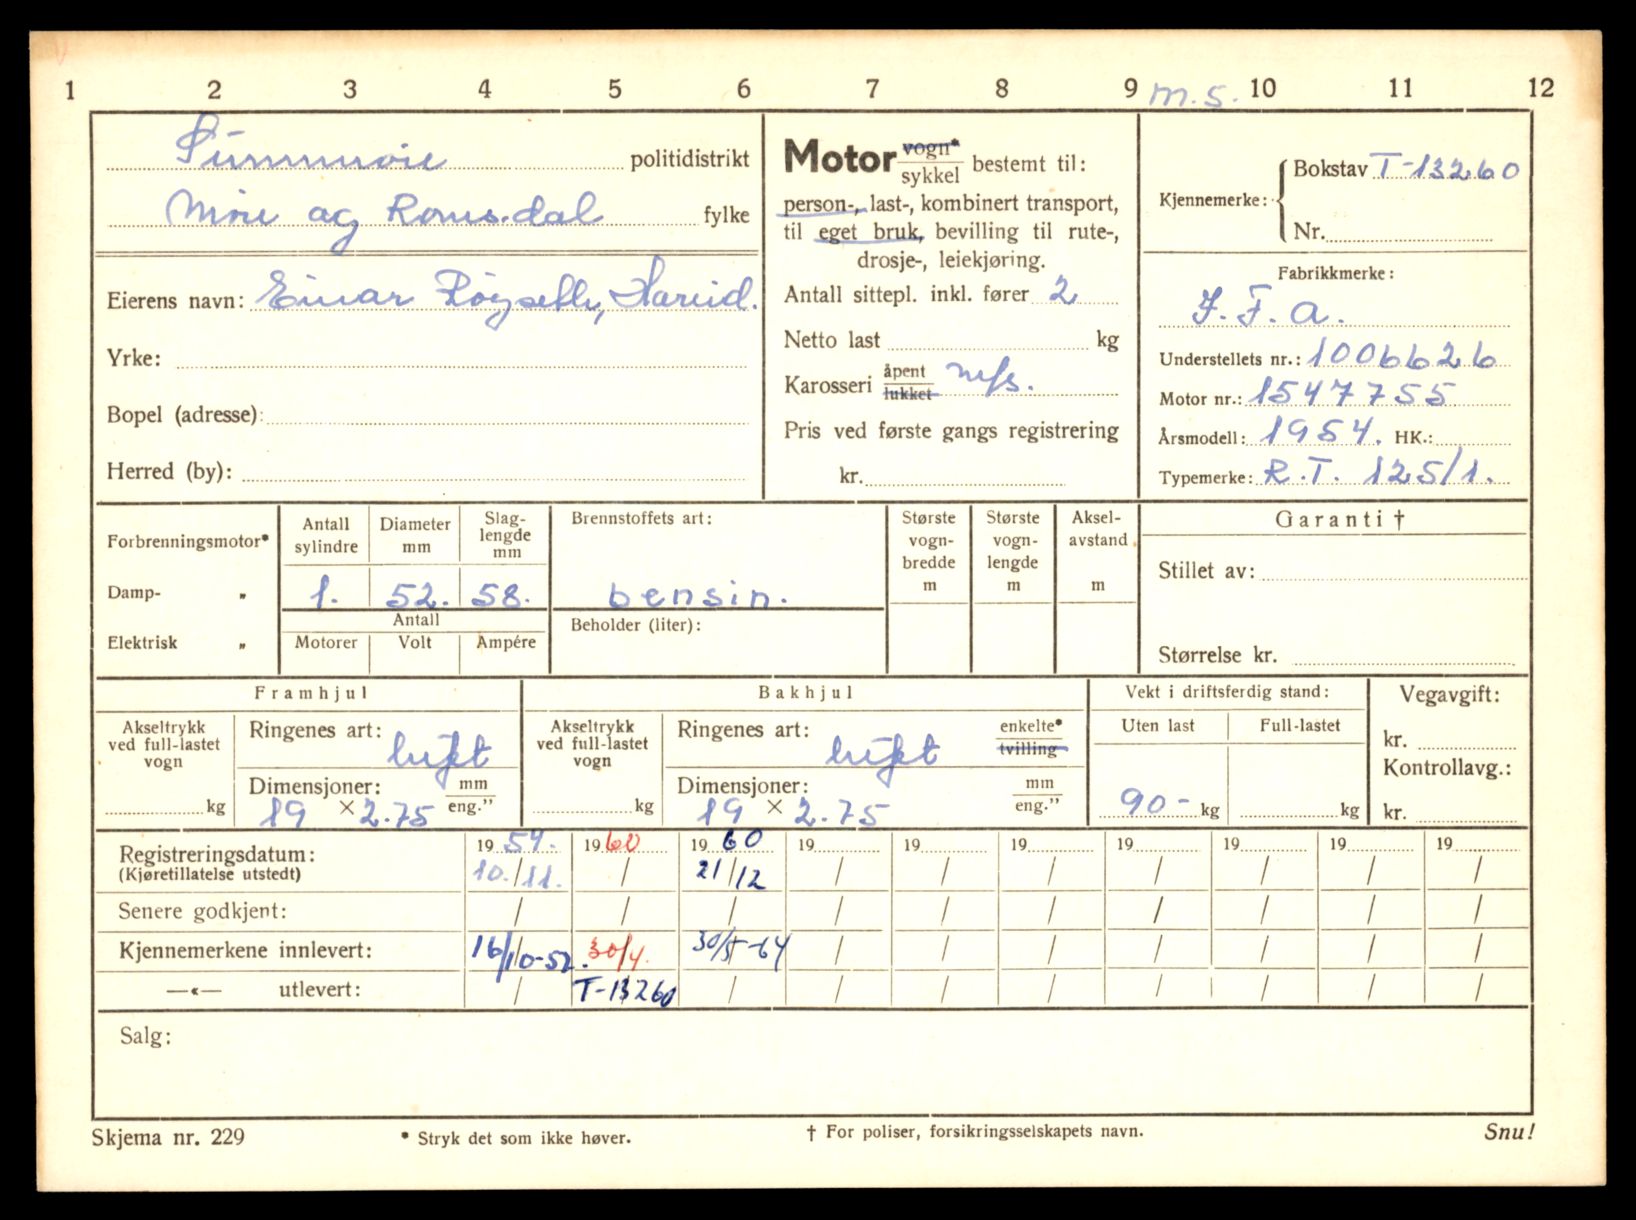 1 2 3 4 5 6 7 8 9 m.s. 10 11 12
Sunnmøre politidistrikt
Møre og Romsdal fylke
Eierens navn: Einar Røyseth, Hareid.
Yrke:
Bopel (adresse):
Herred (by):
Motor vogn* sykkel bestemt til:
person-, last-, kombinert transport,
til eget bruk, bevilling til rute-,
drosje-, leiekjøring.
Antall sittepl. inkl. fører 2
Netto last kg
Karosseri åpent lukket m/s.
Pris ved første gangs registrering
kr.
Kjennemerke: Bokstav T-13260
Nr.
Fabrikkmerke:
J. F. A.
Understellets nr.: 1006626
Motor nr.: 1547755
Årsmodell: 1954. HK.:
Typemerke: R.T. 125/1.
Forbrenningsmotor*
Damp- „
Elektrisk „
Antall sylindre Diameter mm Slaglengde mm
1. 52. 58.
Antall
Motorer Volt Ampére
Brennstoffets art:
bensin.
Beholder (liter):
Største vogn-bredde m
Største vogn-lengde m
Aksel-avstand m
Garanti †
Stillet av:
Størrelse kr.
Framhjul
Akseltrykk ved full-lastet vogn
kg
Ringenes art: luft
Dimensjoner: mm
19 × 2.75 eng.”
Bakhjul
Akseltrykk ved full-lastet vogn
kg
Ringenes art: luft enkelte* tvilling
Dimensjoner: mm
19 × 2.75 eng.”
Vekt i driftsferdig stand:
Uten last Full-lastet
90 - kg kg
Vegavgift:
kr.
Kontrollavg.:
kr.
Registreringsdatum: 19 54. 19 60 19 60 19 19 19 19 19 19 19
(Kjøretillatelse utstedt) 10./11. / 21/12 / / / / / / /
Senere godkjent: / / / / / / / / / /
Kjennemerkene innlevert: 16/10-52. 30/4. 30/5-64 / / / / / / /
—«— utlevert: / T-13260 / / / / / / / /
Salg:
Skjema nr. 229 * Stryk det som ikke høver. † For poliser, forsikringsselskapets navn. Snu!